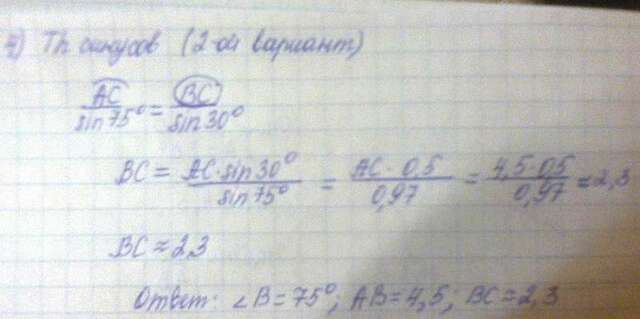 4) Th синусов (2-ой вариант)
AC/sin75° = BC/sin30°
BC = AC·sin30°/sin75° = AC·0,5/0,97 = 4,5·0,5/0,97 ≈ 2,3
BC ≈ 2,3
Ответ: ∠B = 75°; AB = 4,5; BC = 2,3